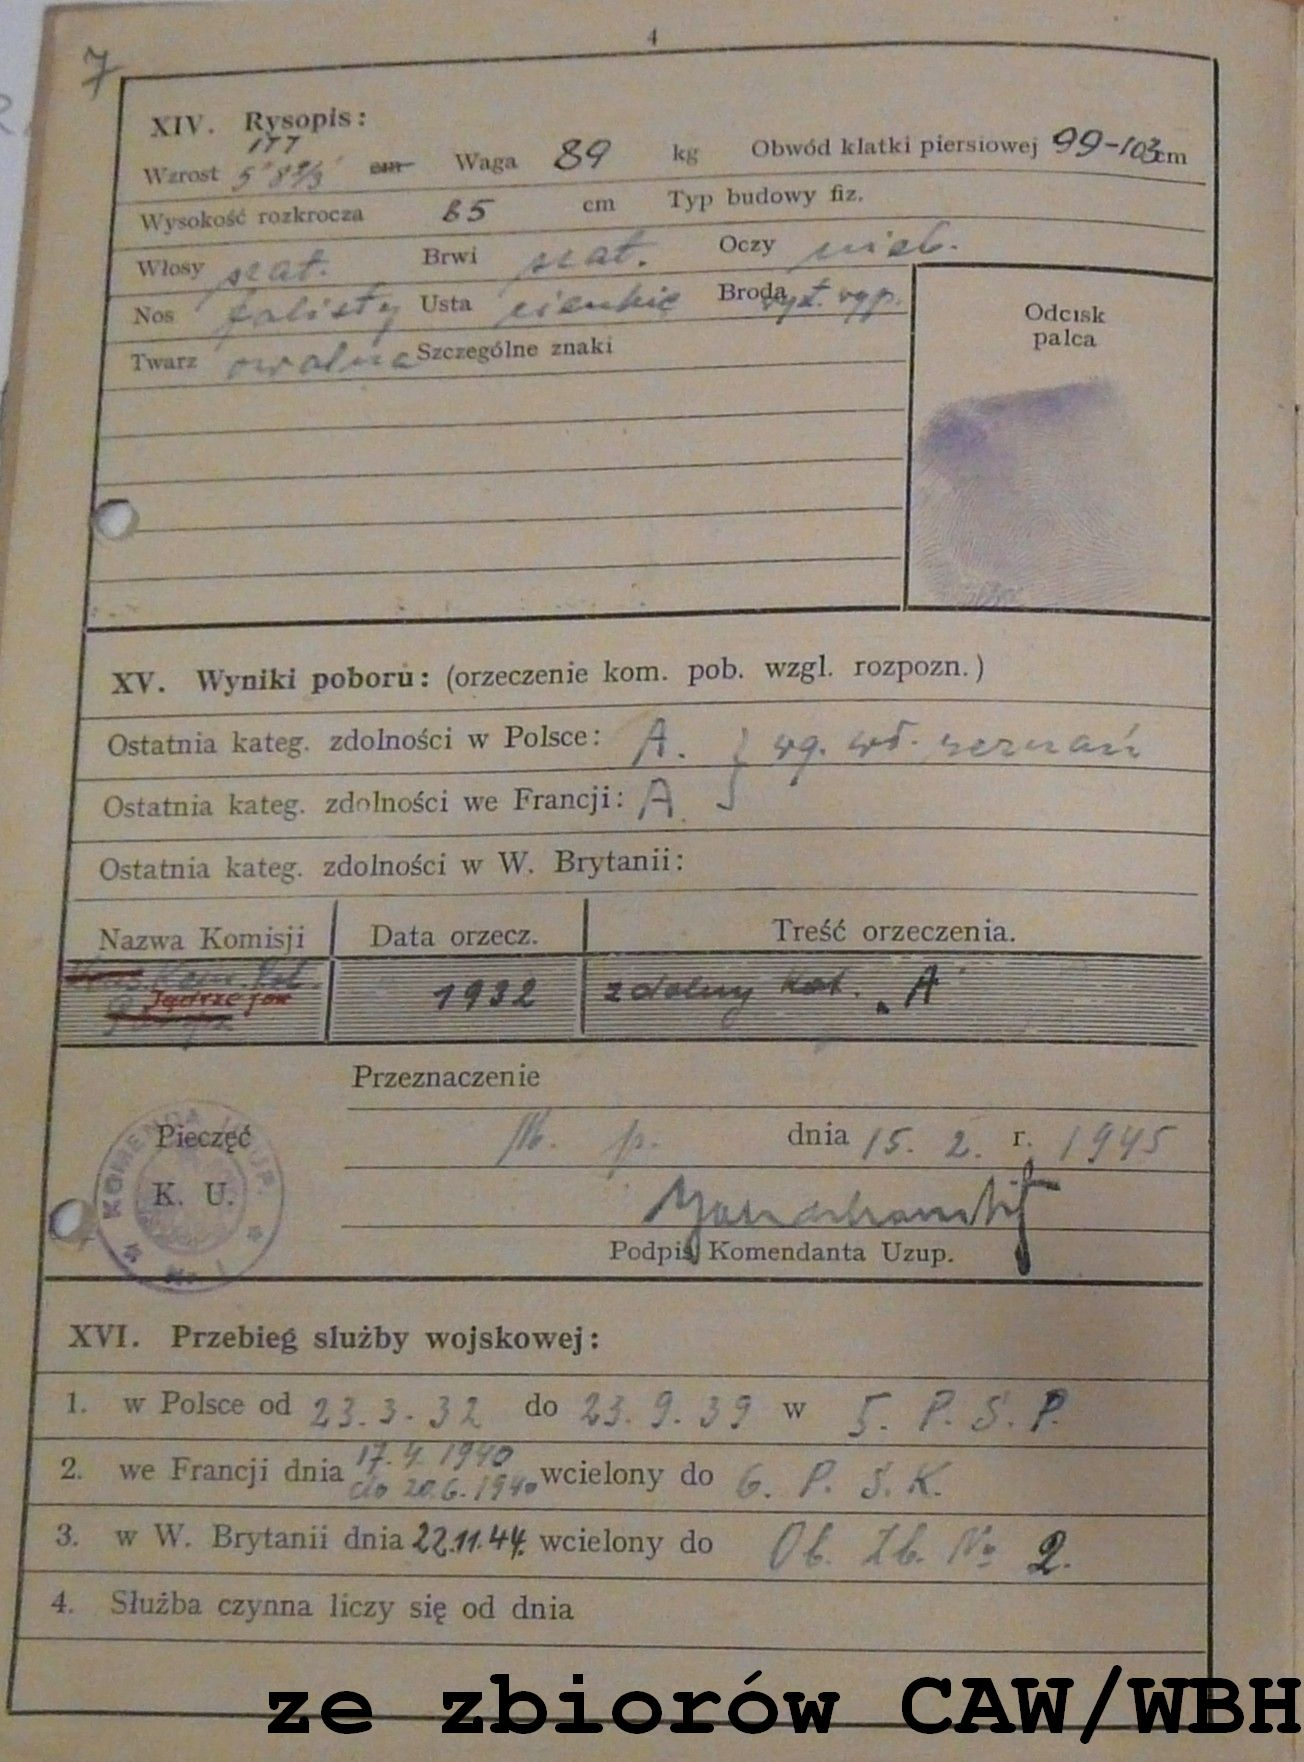 4
7
XIV. Rysopis:
177
Wzrost 5' 8 2/3" cm Waga 89 kg Obwód klatki piersiowej 99-103 cm
Wysokość rozkrocza 85 cm Typ budowy fiz.
Włosy szat. Brwi szat. Oczy nieb.
Nos falisty Usta cienkie Broda wyp.
Twarz owalna Szczególne znaki
Odcisk
palca
XV. Wyniki poboru: (orzeczenie kom. pob. wzgl. rozpozn.)
Ostatnia kateg. zdolności w Polsce: A. } wg. wł. zeznań
Ostatnia kateg. zdolności we Francji: A.
Ostatnia kateg. zdolności w W. Brytanii:
Nazwa Komisji Data orzecz. Treść orzeczenia.
Kom. Pob.
Jędrzejow 1932 zdolny kat. „A"
Przeznaczenie
M. p. dnia 15. 2. r. 1945
Pieczęć
K. U.
KOMENDA UZUP. * Nr 1 *
Podpis Komendanta Uzup.
XVI. Przebieg służby wojskowej:
1. w Polsce od 23.3.32 do 23.9.39 w 5. P. S. P.
2. we Francji dnia 17.4.1940 do 20.6.1940 wcielony do 6. P. S. K.
3. w W. Brytanii dnia 22.11.44. wcielony do Ob. Zb. No 2.
4. Służba czynna liczy się od dnia
ze zbiorów CAW/WBH